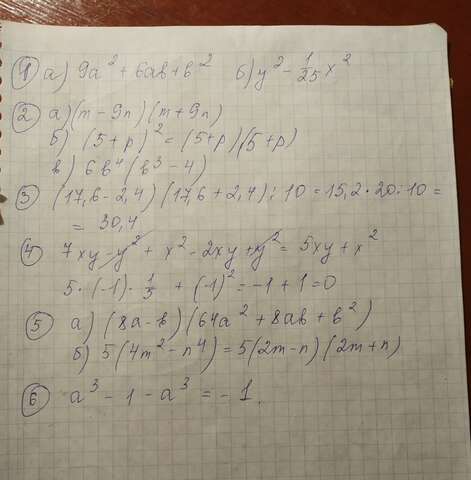 ① а) 9a² + 6ab + b² б) y² - 1/25 x²
② а) (m - 9n)(m + 9n)
б) (5+p)² = (5+p)(5+p)
в) 6b⁴(b³ - 4)
③ (17,6 - 2,4)(17,6 + 2,4) : 10 = 15,2 · 20 : 10 =
= 30,4
④ 7xy - y² + x² - 2xy + y² = 5xy + x²
5 · (-1) · 1/5 + (-1)² = -1 + 1 = 0
⑤ а) (8a - b)(64a² + 8ab + b²)
б) 5(4m² - n⁴) = 5(2m - n)(2m + n)
⑥ a³ - 1 - a³ = - 1.